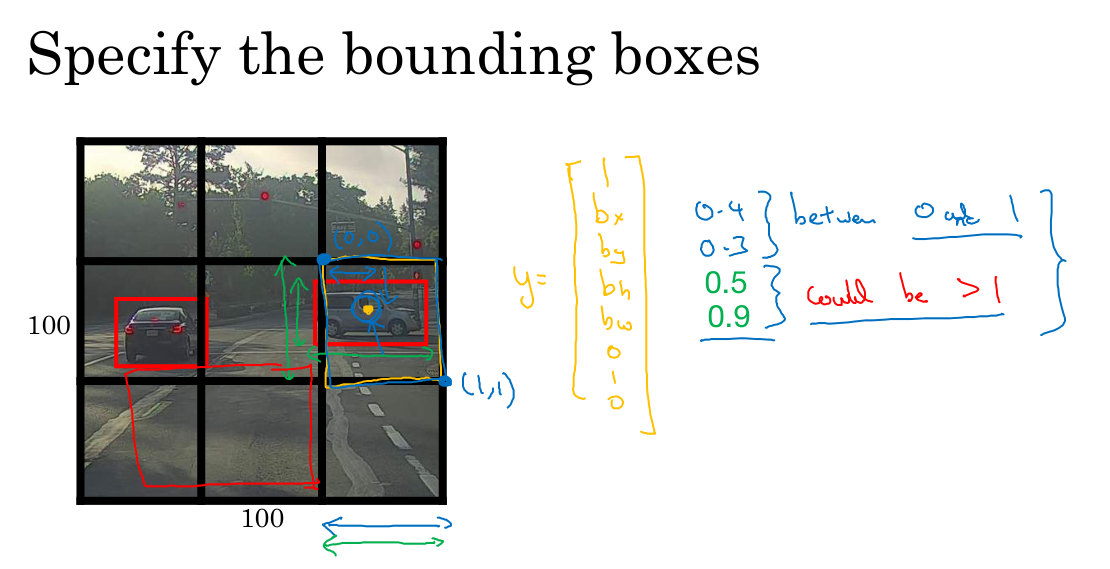 Specify the bounding boxes
100
100
(0,0)
(1,1)
y=
1
bx
by
bh
bw
0
1
0
0.4
0.3
between 0 and 1
0.5
0.9
could be >1